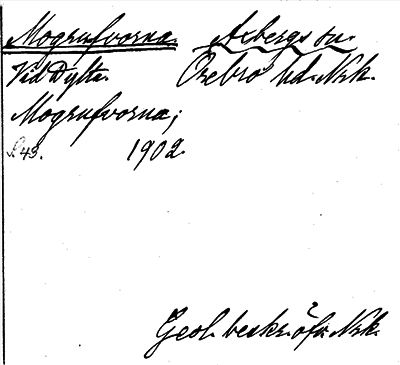 Mogrufvorna Axbergs sn.
Vid Dylta. Örebro hd. Nrk.
Mogrufvorna;
S. 43. 1902
Geol. beskr. öfv. Nrk.